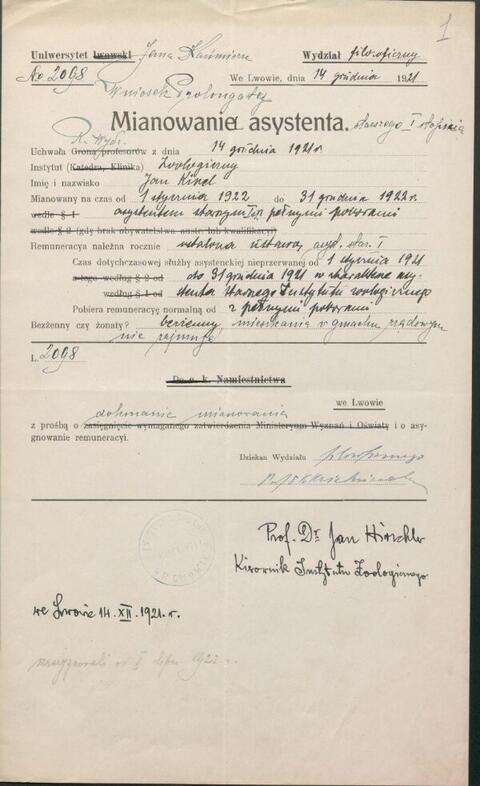 1
Uniwersytet lwowski Jana Kazimierza Wydział filozoficzny
No 2098 We Lwowie, dnia 14 grudnia 1921
Wniosek Prolongaty
Mianowanie asystenta. starszego I stopnia
R. Wydz.
Uchwała Grona profesorów z dnia 14 grudnia 1921 r.
Instytut (Katedra, Klinika) Zoologiczny
Imię i nazwisko Jan Kinel
Mianowany na czas od 1 stycznia 1922 do 31 grudnia 1922 r.
wedle § 1 asystentem starszym I z pełnymi poborami
wedle § 2 (gdy brak obywatelstwa austr. lub kwalifikacyi)
Remuneracya należna rocznie ustalona ustawą asyst. star. I
Czas dotychczasowej służby asystenckiej nieprzerwanej od 1 stycznia 1921
a tego według § 2 od do 31 grudnia 1921 w charakterze asy-
według § 1 od stenta starszego Instytutu zoologicznego
Pobiera remuneracyę normalną od z pełnymi poborami
Bezżenny czy żonaty? bezżenny, mieszkania w gmachu rządowym
nie zajmuje
L. 2098
Do c. k. Namiestnictwa
we Lwowie
dokonanie mianowania
z prośbą o zasięgnięcie wymaganego zatwierdzenia Ministeryum Wyznań i Oświaty i o asy-
gnowanie remuneracyi.
Dziekan Wydziału filozoficznego
Prof. Dr Jan Hirschler
Kierownik Instytutu Zoologicznego
we Lwowie 14. XII. 1921. r.
zrezygnował od 1 lipca 1922 r.